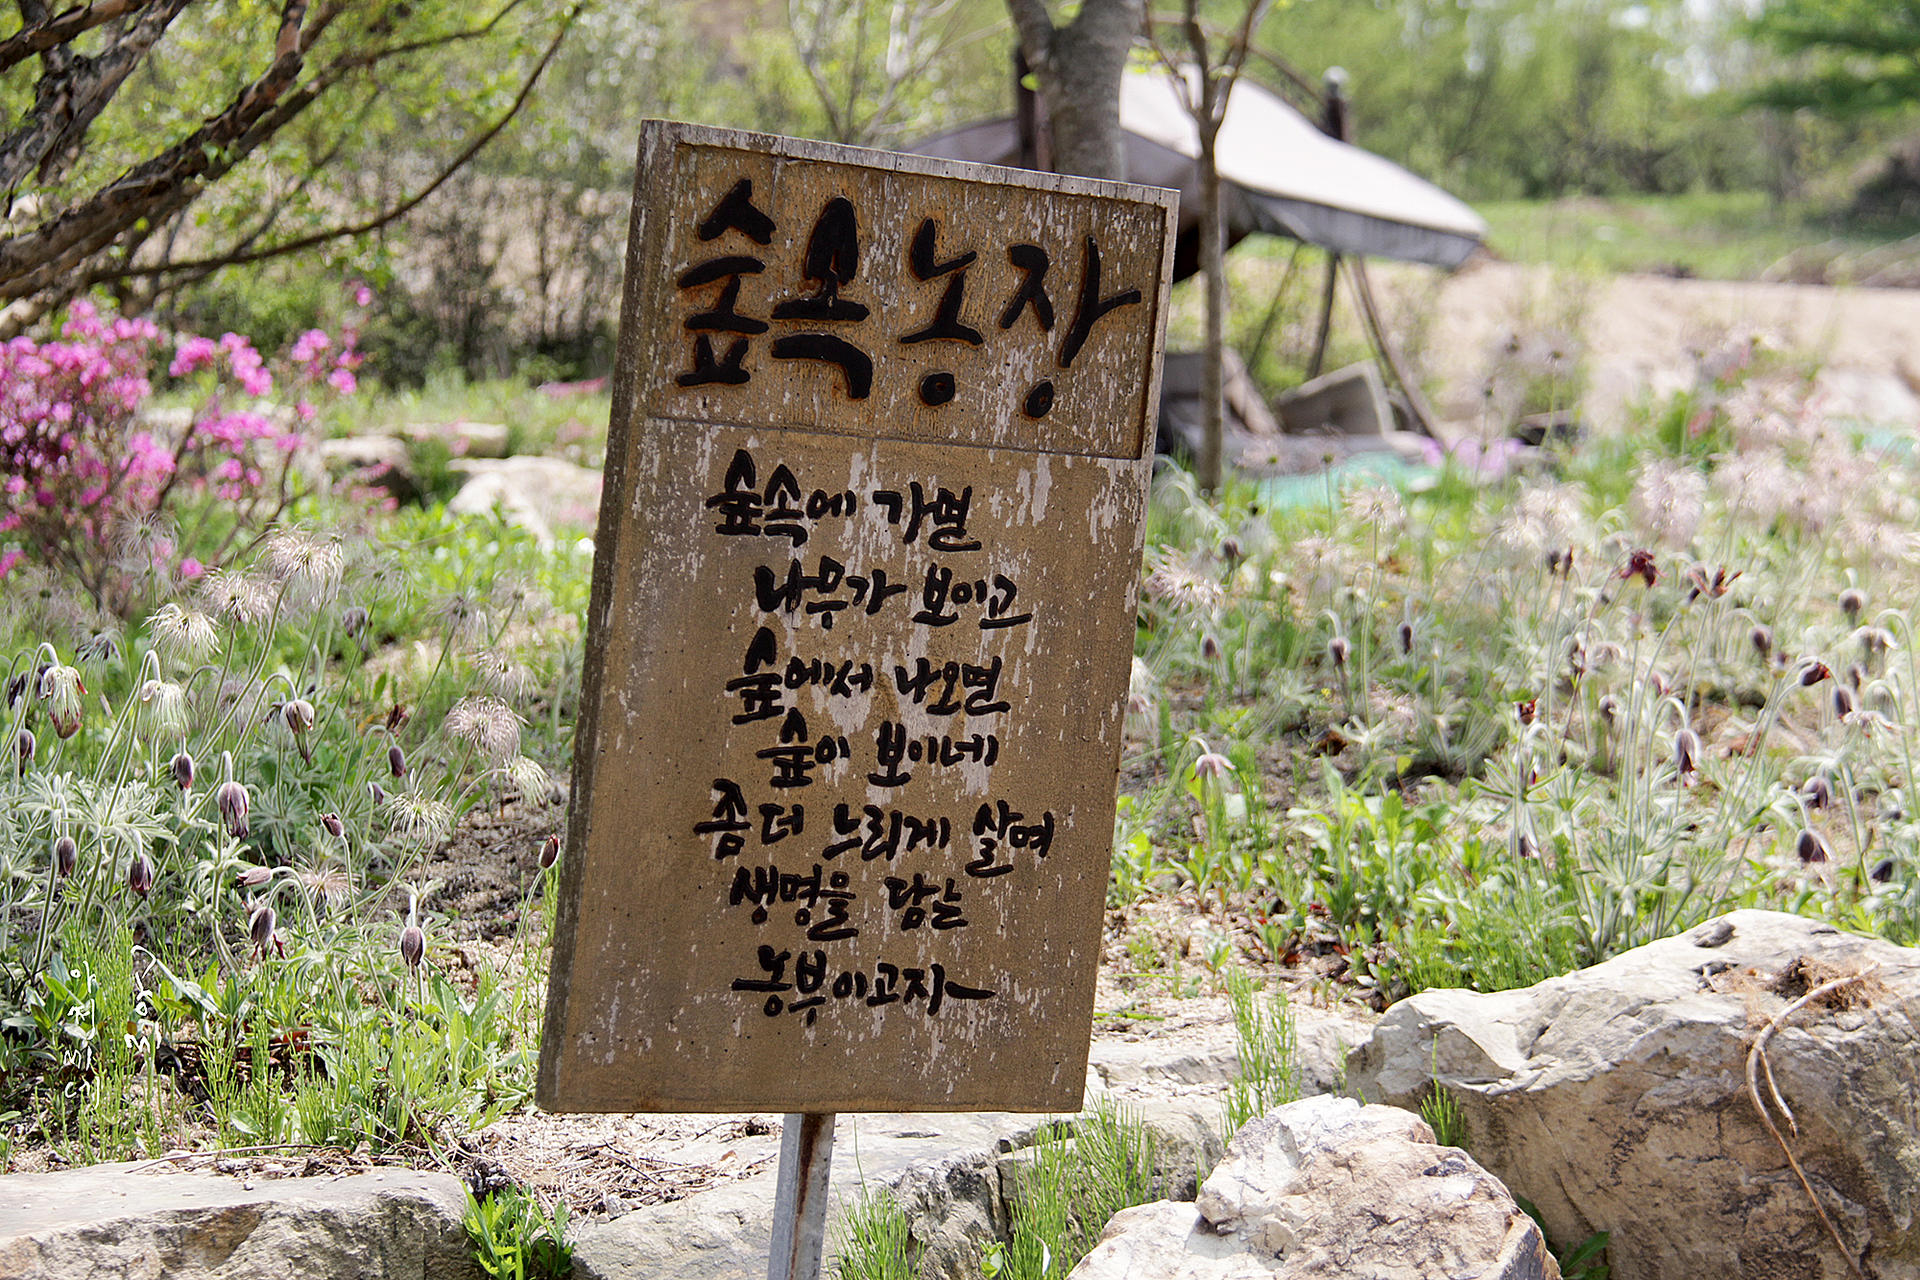 숲속농장
숲속에 가면
나무가 보이고
숲에서 나오면
숲이 보이네
좀 더 느리게 살며
생명을 담는
농부이고자~